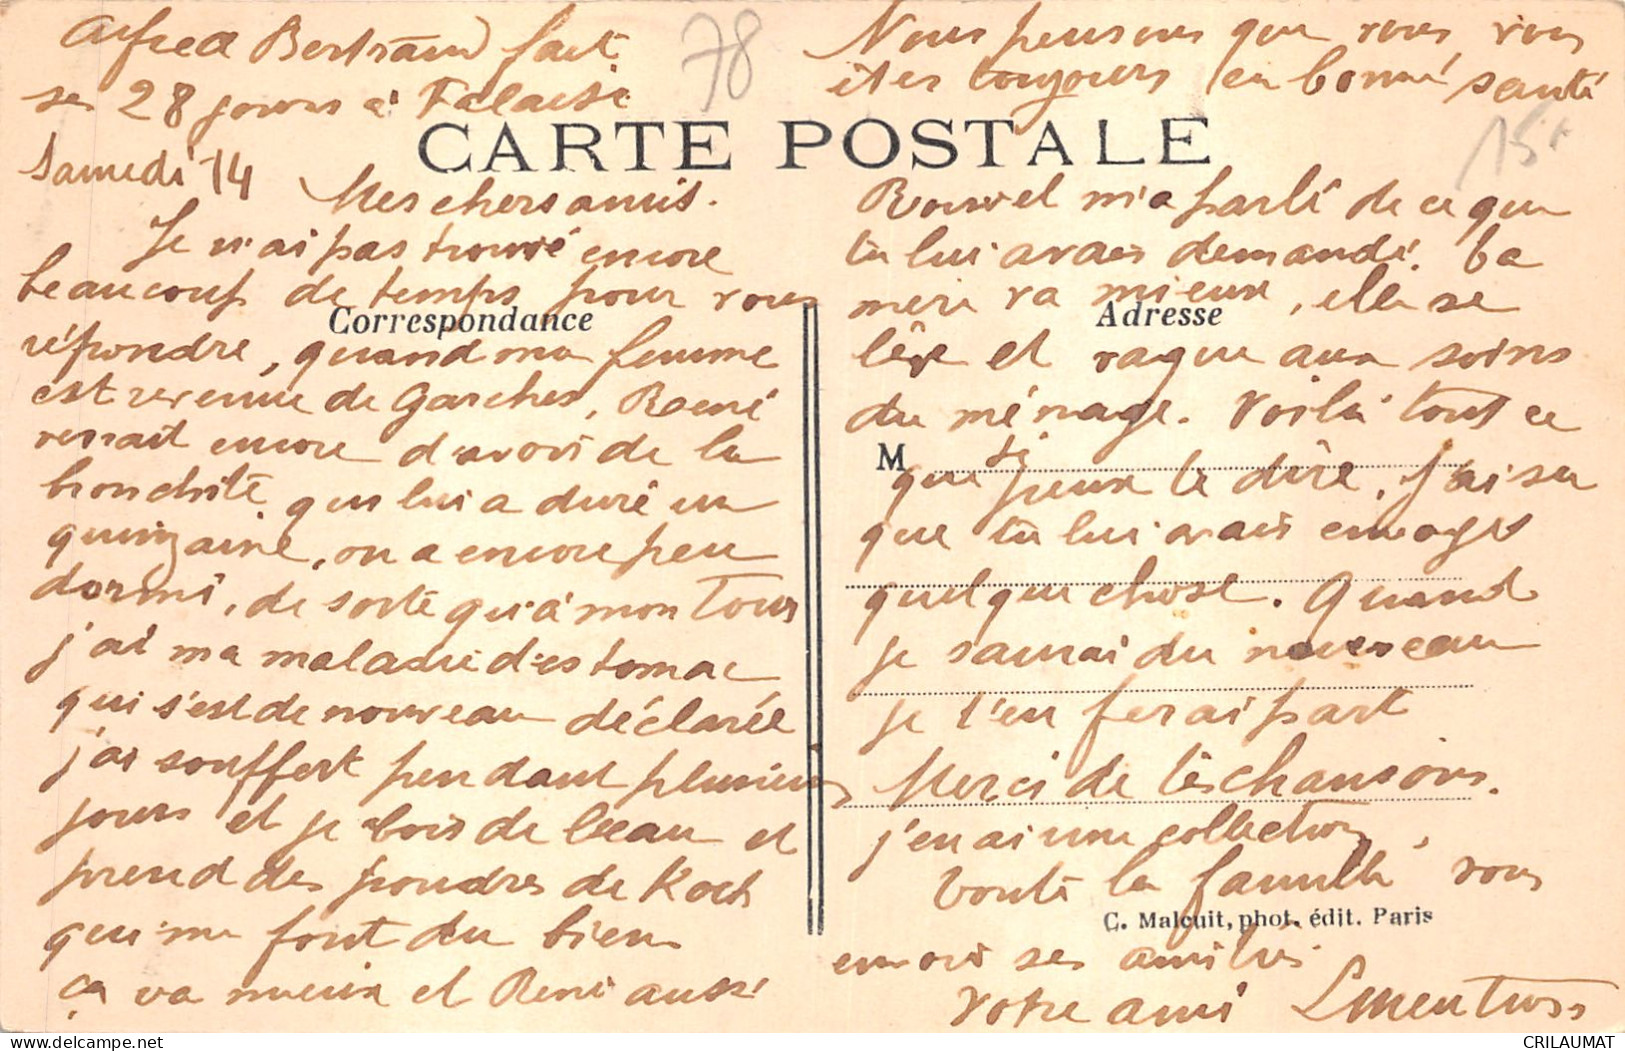 Alfred Bertrand fait
ses 28 jours à Falaise
Samedi 14
Mes chers amis.
Je n'ai pas trouvé encore
beaucoup de temps pour vous
Correspondance
répondre, quand ma femme
est revenue de Garches, René
venait encore d'avoir de la
bronchite qui lui a duré une
quinzaine, on a encore peu
dormi, de sorte qu'à mon tour
j'ai ma maladie d'estomac
qui s'est de nouveau déclarée
j'ai souffert pendant plusieurs
jours et je bois de l'eau et
prend des poudres de Koch
qui me font du bien
ça va mieux et René aussi
78
CARTE POSTALE
Nous pensons que vous vous
êtes toujours en bonne santé
15f
Rouvel m'a parlé de ce que
tu lui avais demandé. Sa
mère va mieux, elle se
Adresse
lève et vaque aux soins
du ménage. Voilà tout ce
M
que je peux te dire, j'ai su
que tu lui avais envoyé
quelque chose. Quand
je saurai du nouveau
je t'en ferai part
Merci de tes chansons.
j'en ai une collection,
Toute la famille vous
C. Malcuit, phot. édit. Paris
envoie ses amitiés
Votre ami
CRILAUMAT